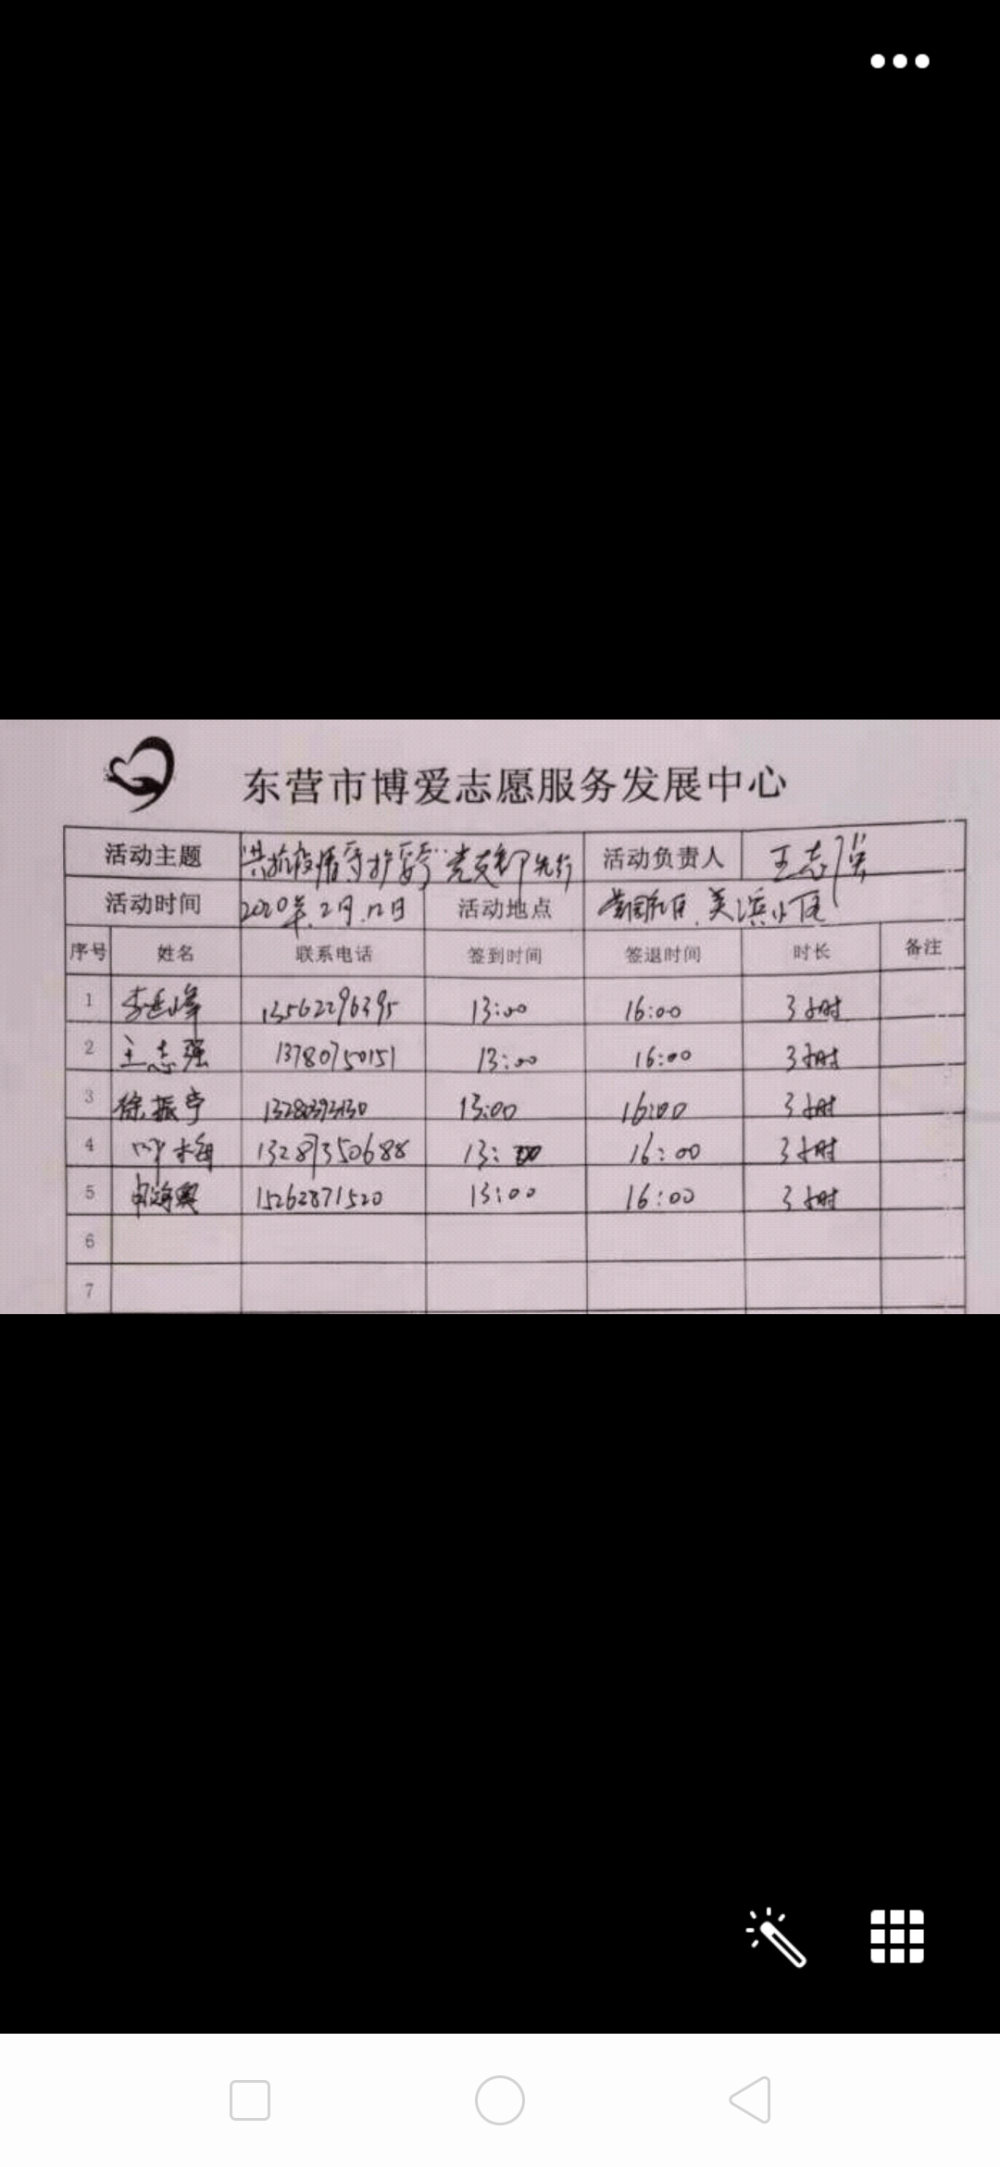 东营市博爱志愿服务发展中心
活动主题 共抗疫情守护家 党支部先行 活动负责人 王志强
活动时间 2020年.2月.12日 活动地点 美滨小区
序号 姓名 联系电话 签到时间 签退时间 时长 备注
1 李岳峰 13562296395 13:00 16:00 3小时
2 王志强 13780750151 13:00 16:00 3小时
3 徐振宁 13:00 16:00 3小时
4 叶梅 13287350688 13:00 16:00 3小时
5 15262871520 13:00 16:00 3小时
6
7